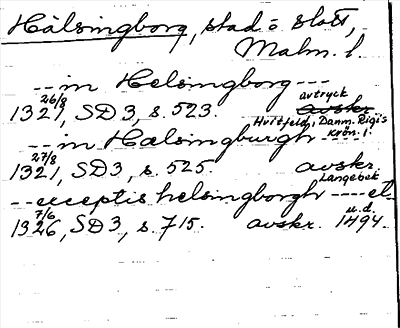 Hälsingborg, stad o slott,
Malm. l.
-- in Helsingborg ---
26/8 avtryck
1321, SD 3, s. 523. avskr.
Hvitfeld, Danm. Rigis
-- in Halsingburgh --- Krön. 1.
27/8
1321, SD 3, s. 525. avskr.
Langebek
-- exceptis helsingborgh ---- et
7/6 u.d.
1326, SD 3, s. 715. avskr. 1494.